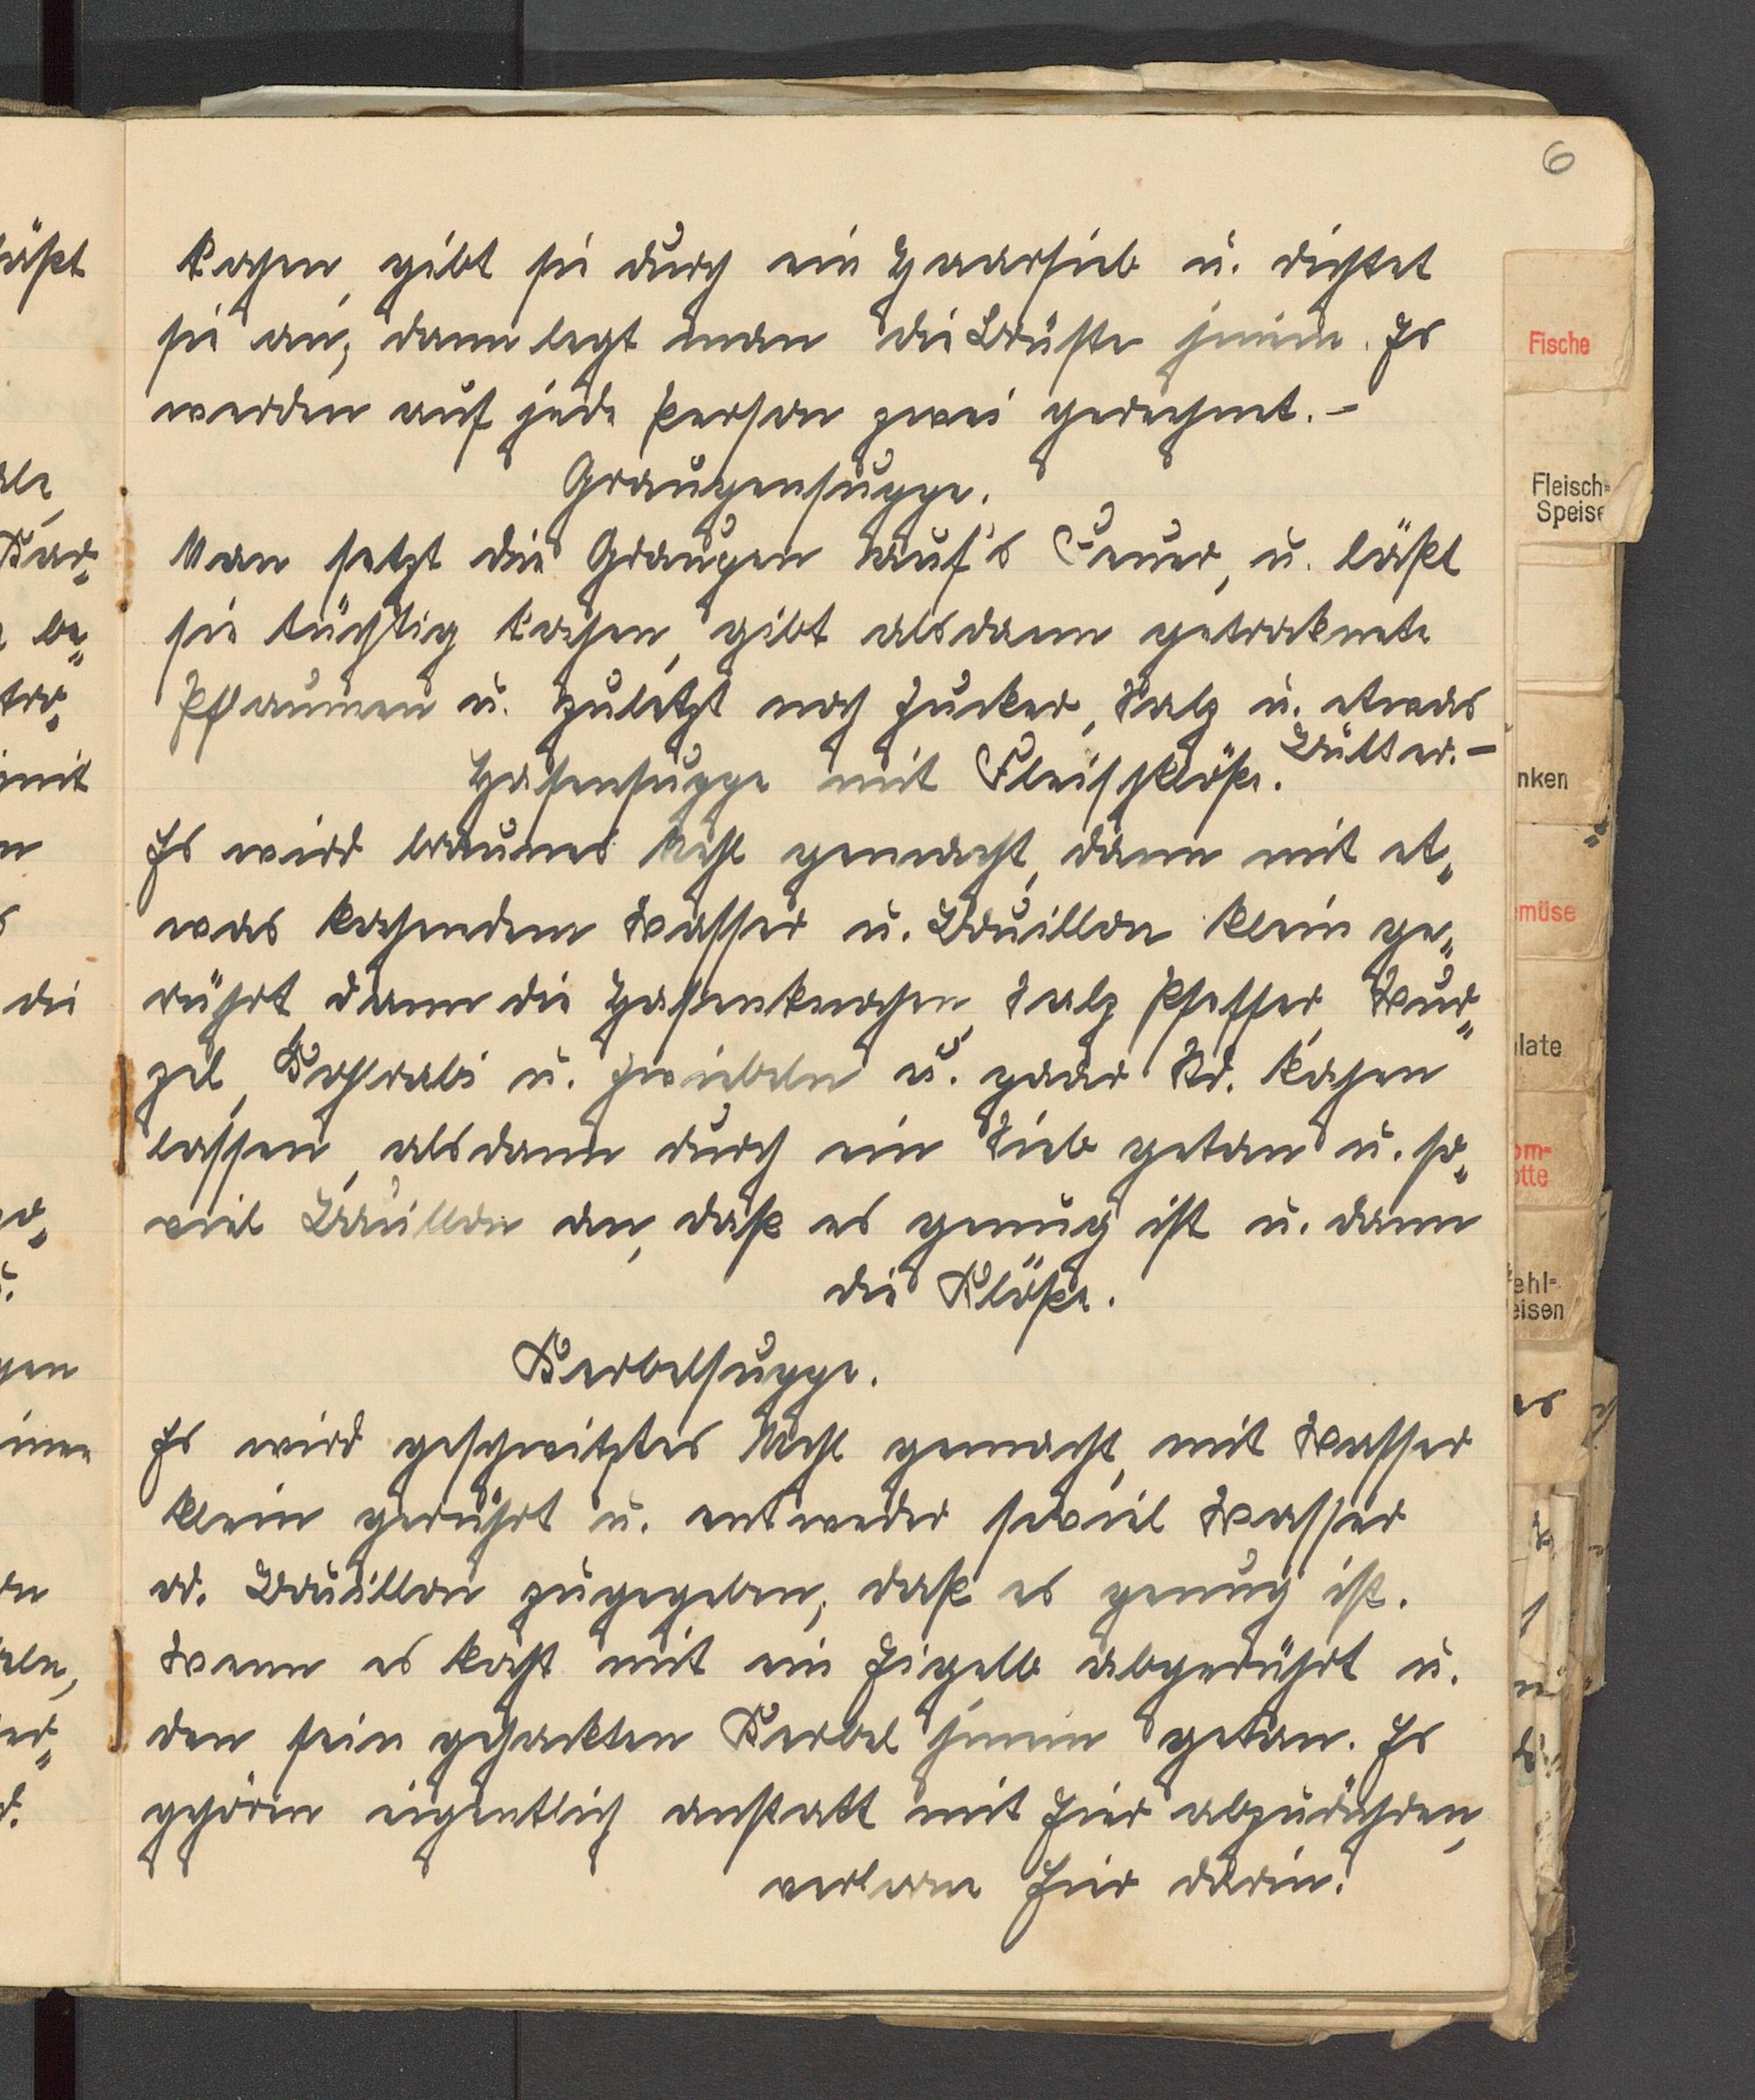 6
kochen, gibt sie durch ein Haarsieb u. dichtet
sie an; dann legt man die Würste hinein. Es
werden auf jede Person zwei gerechnet. –
Graupensuppe.
Man setzt die Graupen auf's Feuer, u. läßt
sie tüchtig kochen, gibt alsdann getrocknete
Pflaumen u. zuletzt noch Zucker, Salz u. etwas
Butter. –
Hasensuppe mit Fleischklöße.
Es wird braunes Mehl gemacht, dann mit et-
was kochendem Wasser u. Bouillon klein ge-
rührt dann die Hasenknochen, Salz Pfeffer, Wur-
zel, Kohlrabi u. Zwiebeln u. gaar St. kochen
lassen, alsdann durch ein Sieb getan u. so-
viel Bouillon an, daß es genug ist u. dann
die Klöße.
Kerbelsuppe.
Es wird geschwitztes Mehl gemacht, mit Wasser
klein gerührt u. entweder soviel Wasser
od. Bouillon zugegeben, daß es genug ist.
Wenn es kocht mit ein Eigelb abgerührt u.
den fein gehackten Kerbel hinein getan. Es
gehören eigentlich anstatt mit Eier abzurühren,
verlorne Eier darin.
Fische
Fleisch-
Speise
nken
müse
late
om-
otte
ehl-
eisen